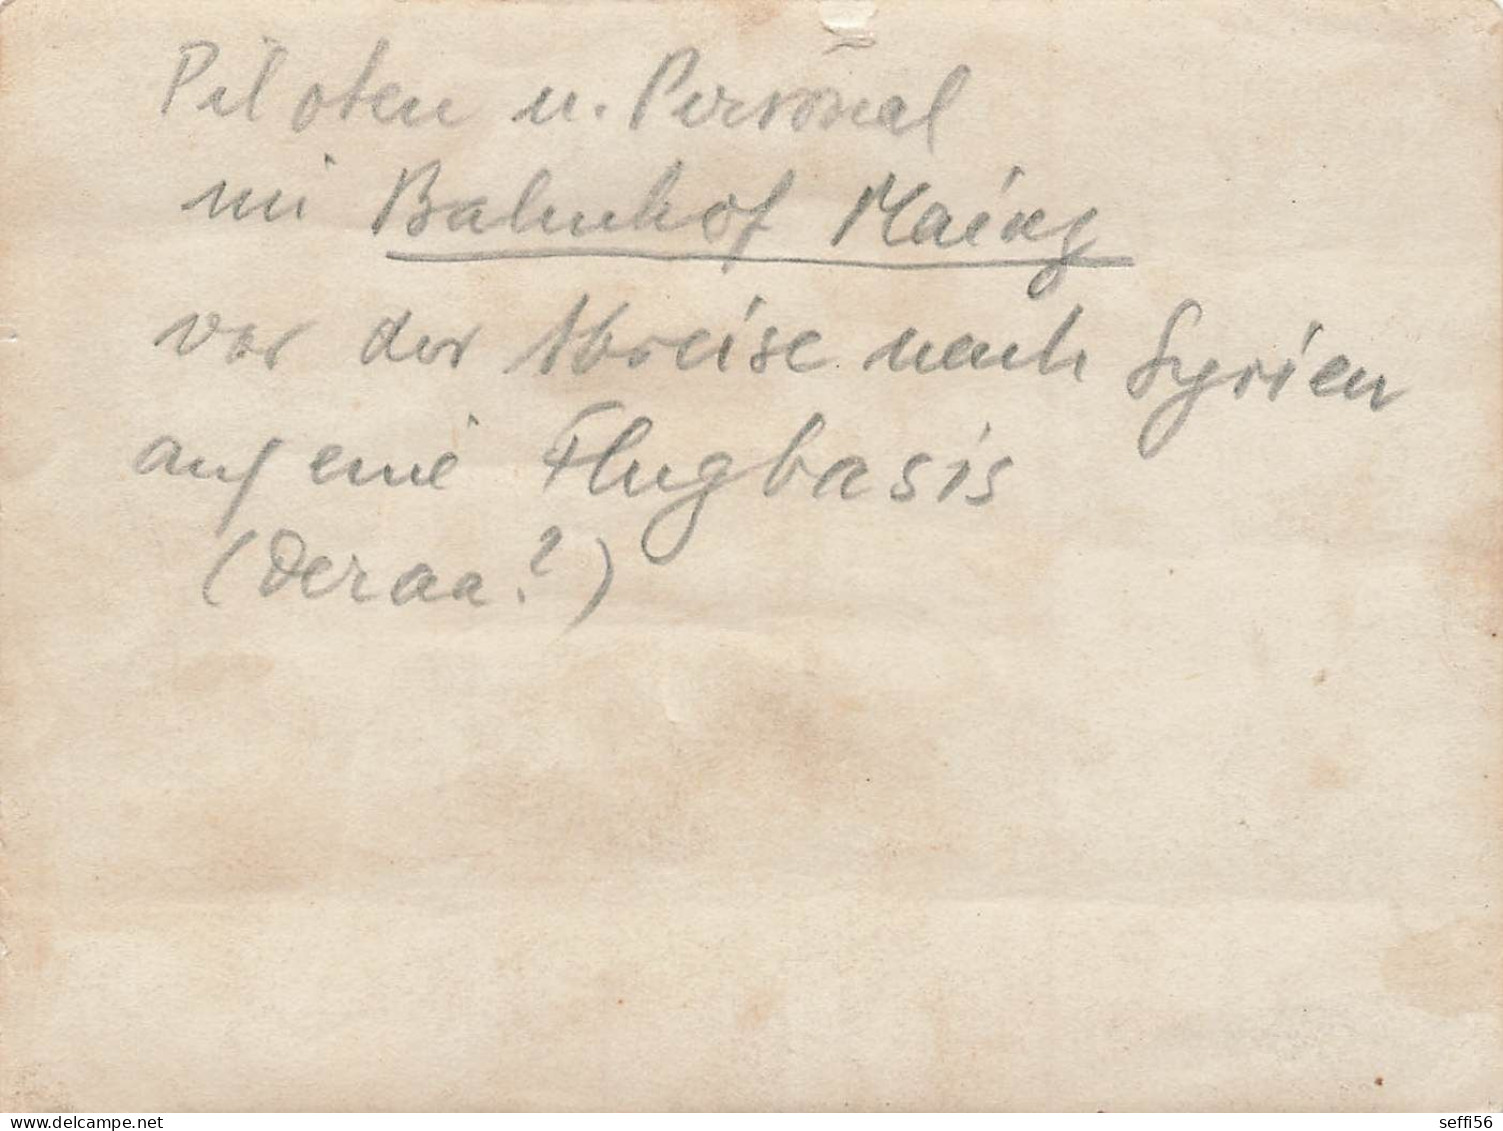 Piloten u. Personal
im Bahnhof Mainz
vor der Abreise nach Syrien
auf eine Flugbasis
(Deraa?)
www.delcampe.net
seffi56